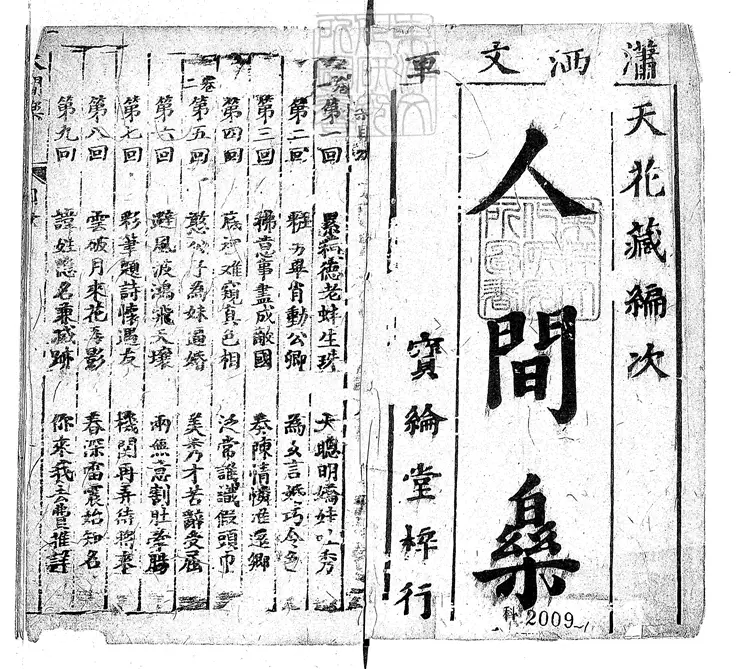 瀟洒文章
天花藏編次
人間樂
寶綸堂梓行
科 2009-1
一卷 第一回 累積德老蚌生珠 大聰明嬌娃吐秀
第二回 畢肖動公卿 巧令色
第三回 拂意事盡成敵國 奏陳情憐准還鄉
第四回 难窺真色相 泛常誰識假頭巾
二卷 第五回 憨公子為妹逼婚 美秀才苦辭受屈
第六回 避風波鴻飛天壤 兩無意割肚牽腸
第七回 彩筆題詩悮遇友 機関再弄待將來
第八回 雲破月來花弄影 春深雷震始知名
第九回 諱姓隱名兼藏跡 你來我去費推詳